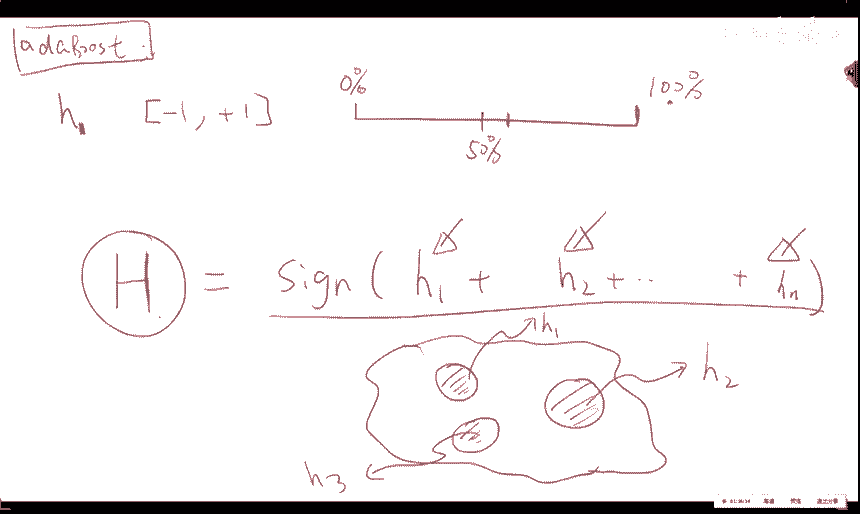 adaBoost.
0% 100%
h, [-1, +1]
50%
H = Sign ( h1 + h2 + ·· + hn )
h1
h2
h3